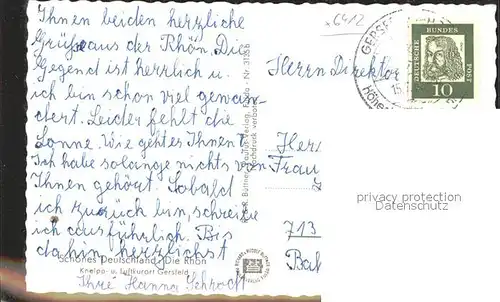 Ihnen beiden herzliche
Grüße aus der Rhön. Die
Gegend ist herrlich u.
ich bin schon viel gewan-
dert. Leider fehlt die
Sonne. Wie geht es Ihnen?
Ich habe solange nichts von
Ihnen gehört. Sobald
ich zurück bin, schreibe
ich ausführlich. Bis
dahin herzlichst
Ihre Hanna
Schönes Deutschland: Die Rhön
Kneipp- u. Luftkurort Gersfeld
Nachdruck verboten
Herrn Direktor
Frau
713
DEUTSCHE BUNDESPOST
10
privacy protection
Datenschutz